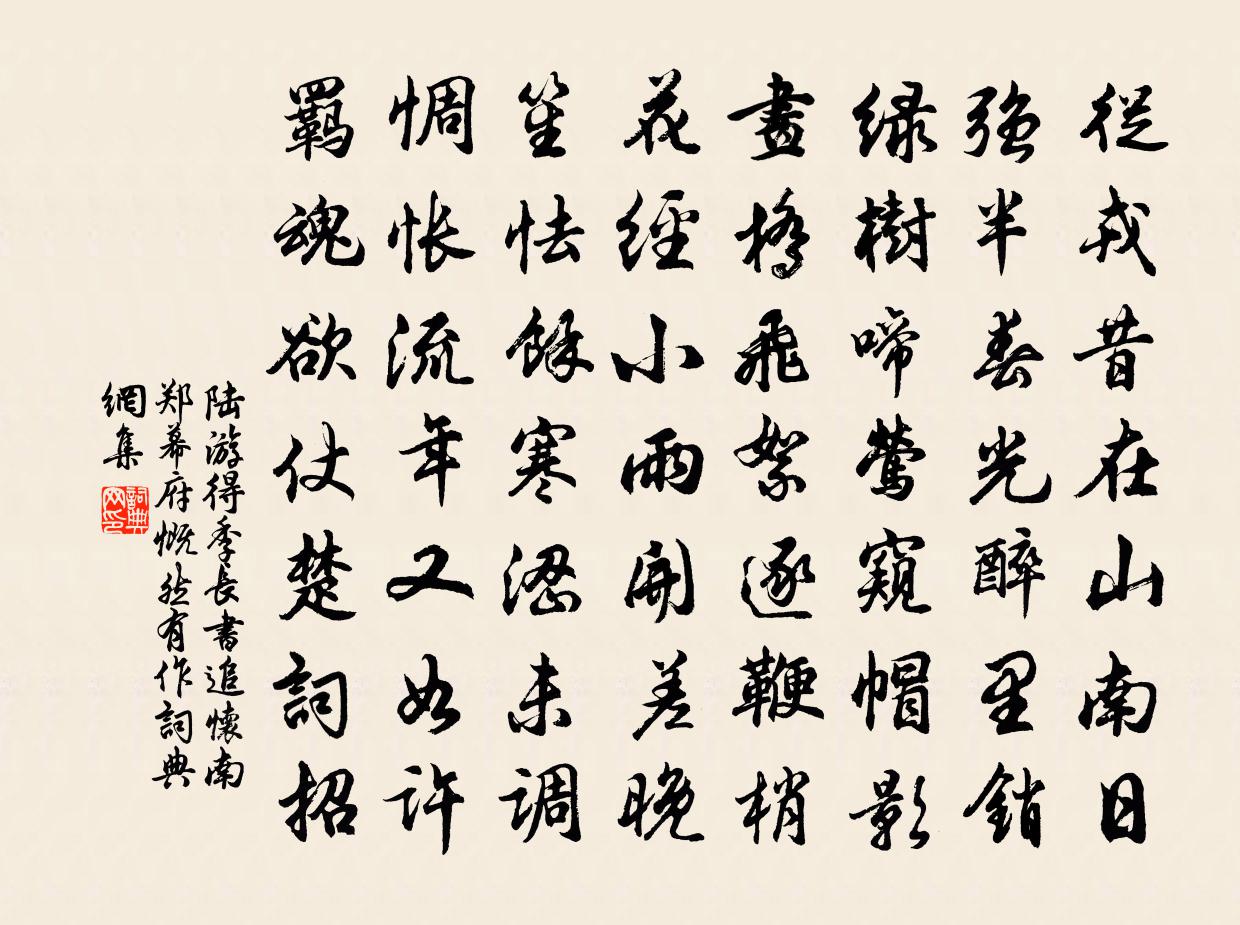 從戎昔在山南日
强半春光醉里銷
绿樹啼鶯窺帽影
畫橋飛絮逐鞭梢
花經小雨開差晚
笙怯餘寒澀未調
惆怅流年又如許
羈魂欲仗楚詞招
陆游得季長書追懷南
郑幕府慨然有作詞典
網集
詞典
网印